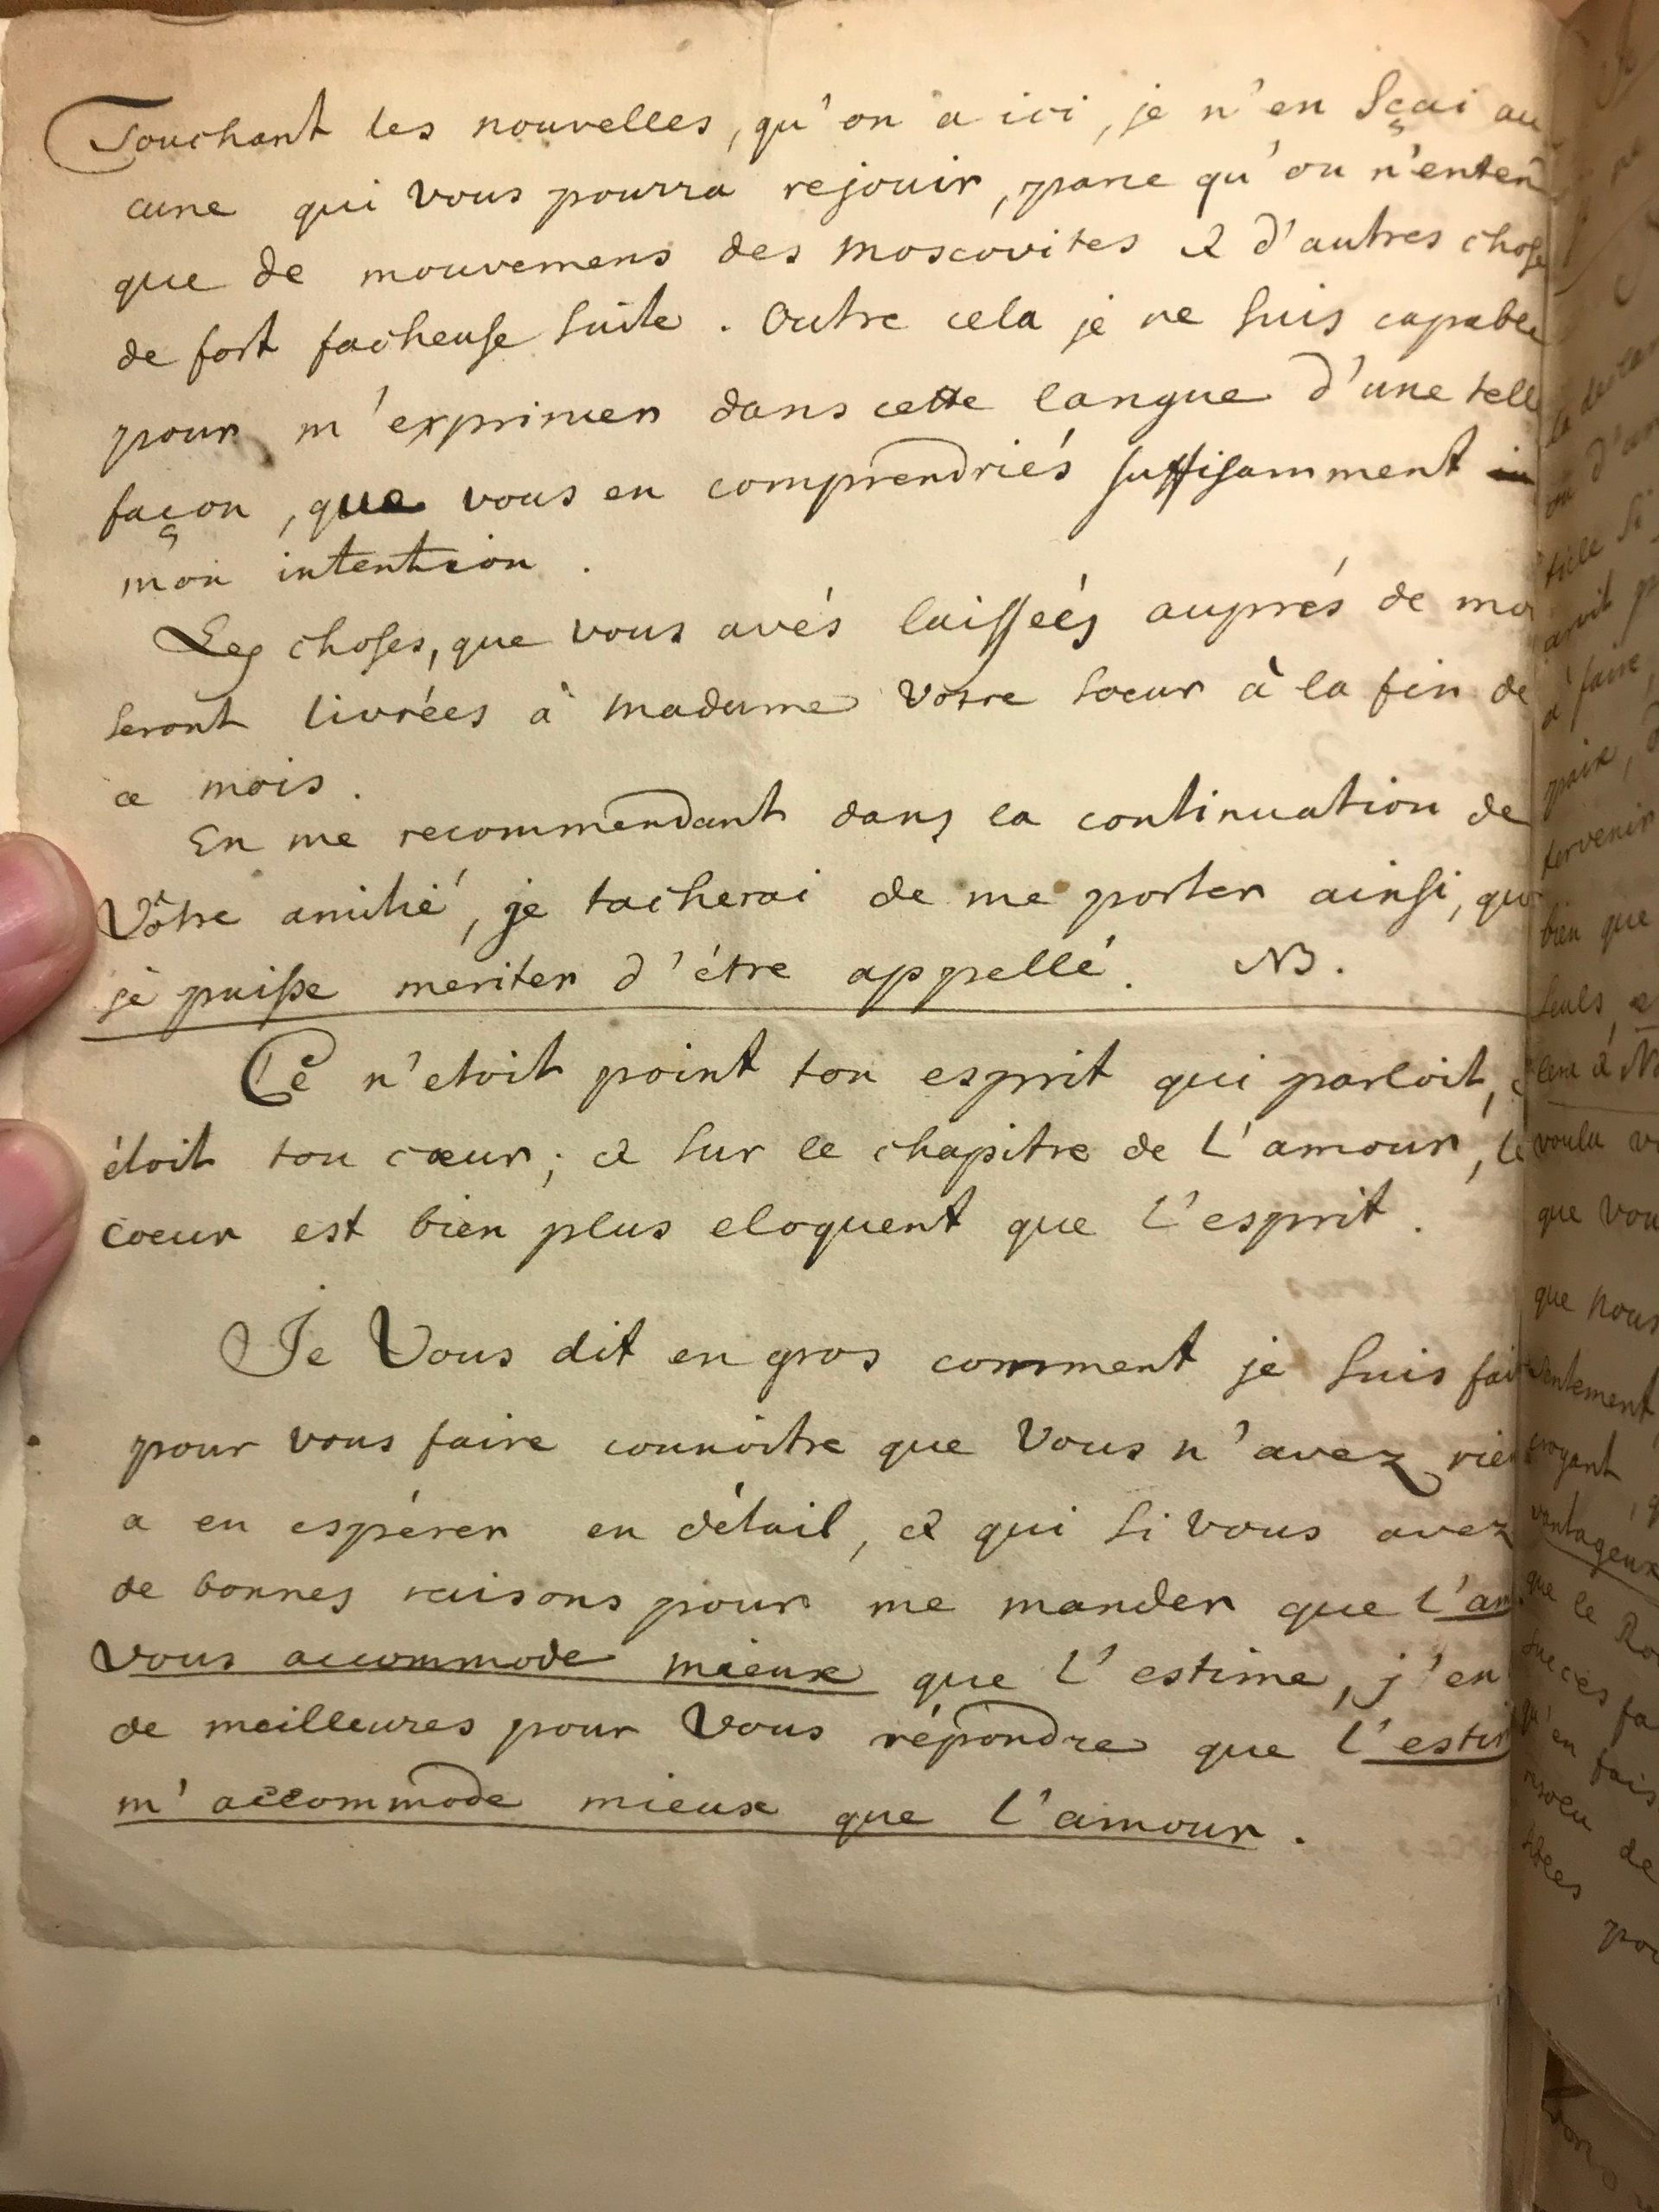 Touchant les nouvelles, qu'on a ici, je n'en sçai au
cune qui vous pourra rejouir, parce qu'on n'enten
que de mouvemens des moscovites & d'autres chose
de fort facheuse suite. Outre cela je ne suis capable
pour m'exprimer dans cette langue d'une telle
façon, que vous en comprendriés suffisamment
mon intention.
Les choses, que vous avés laisseés auprés de moi
seront livrées à madame votre soeur à la fin de
ce mois.
En me recommendant dans la continuation de
Vôtre amitié, je tacherai de me porter ainsi, que
je puisse meriter d'étre appellé. NB.
Ce n'etoit point ton esprit qui parloit, c
étoit ton cœur; & sur le chapitre de l'amour, le
coeur est bien plus eloquent que l'esprit.
Je Vous dit en gros comment je suis fait
pour vous faire connoitre que Vous n'avez rien
a en espérer en détail, & qui si vous avez
de bonnes raisons pour me mander que l'am
vous accommode mieux que l'estime, j'en
de meilleures pour Vous répondre que l'esti
m'accommode mieux que l'amour.
ticle si
à faire
paix,
tervenir
bien que
seuls, &
voulu
que vou
que nous
croyant
vantageux
que le Ro
succes fa
qu'en fais
resolu de